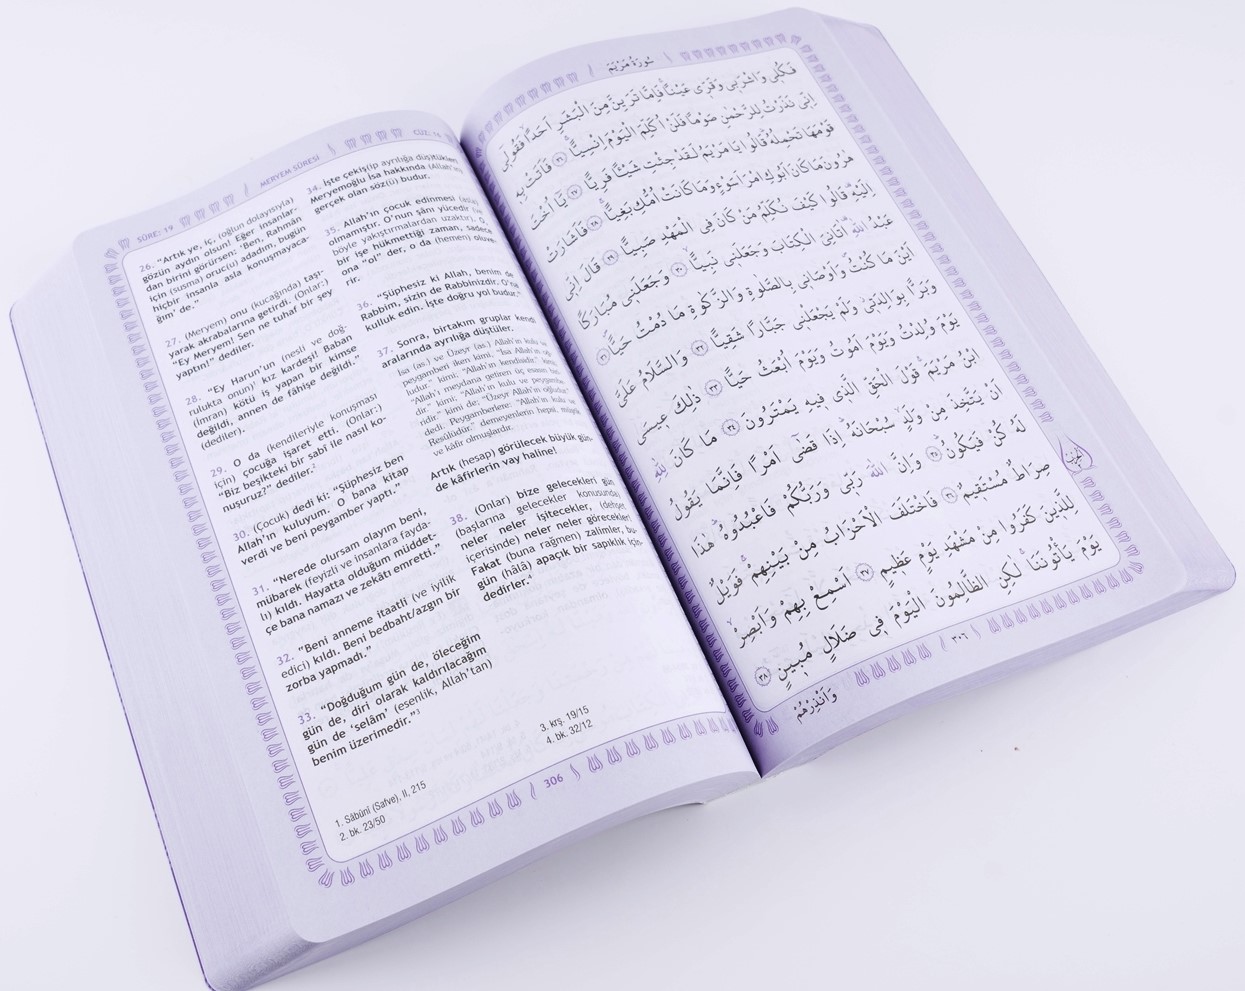 SÛRE: 19
MERYEM SÛRESİ
CÜZ: 16
26. “Artık ye, iç, (oğlun dolayısıyla)
gözün aydın olsun! Eğer insanlar-
dan birini görürsen: ‘Ben, Rahmân
için (susma) oruc(u) adadım, bugün
hiçbir insanla asla konuşmayaca-
ğım’ de.”
27. (Meryem) onu (kucağında) taşı-
yarak akrabalarına getirdi. (Onlar:)
“Ey Meryem! Sen ne tuhaf bir şey
yaptın!” dediler.
28. “Ey Harun’un (nesli ve doğ-
rulukta onun) kız kardeşi! Baban
(İmran) kötü iş yapan bir kimse
değildi, annen de fâhişe değildi.”
(dediler).
29. O da (kendileriyle konuşması
için) çocuğa işaret etti. (Onlar:)
“Biz beşikteki bir sabî ile nasıl ko-
nuşuruz?” dediler.²
30. (Çocuk) dedi ki: “Şüphesiz ben
Allah’ın kuluyum. O bana kitap
verdi ve beni peygamber yaptı.”
31. “Nerede olursam olayım beni,
mübarek (feyizli ve insanlara fayda-
lı) kıldı. Hayatta olduğum müddet-
çe bana namazı ve zekâtı emretti.”
32. “Beni anneme itaatli (ve iyilik
edici) kıldı. Beni bedbaht/azgın bir
zorba yapmadı.”
33. “Doğduğum gün de, öleceğim
gün de, diri olarak kaldırılacağım
gün de ‘selâm’ (esenlik, Allah’tan)
benim üzerimedir.”³
34. İşte çekiş(ip ayrılığa düş)tükleri
Meryemoğlu İsa hakkında (Allah’ın)
gerçek olan söz(ü) budur.
35. Allah’ın çocuk edinmesi (asla)
olmamıştır. O’nun şânı yücedir (ve
böyle yakıştırmalardan uzaktır). O,
bir işe hükmettiği zaman, sadece
ona “ol” der, o da (hemen) oluve-
rir.
36. “Şüphesiz ki Allah, benim de
Rabbim, sizin de Rabbinizdir. O’na
kulluk edin. İşte doğru yol budur.”
37. Sonra, birtakım gruplar kendi
aralarında ayrılığa düştüler.
İsa (as.) ve Üzeyr (as.) Allah’ın kulu ve
peygamberi iken kimi, “İsa Allah’ın oğ-
ludur.” kimi; “Allah’ın kendisidir.” kimi;
“Allah’ı meydana getiren üç esasın biri-
dir.” kimi; “Allah’ın kulu ve peygambe-
ridir.” kimi de; “Üzeyr Allah’ın oğludur.”
dedi. Peygamberlere: “Allah’ın kulu ve
Resûlüdür.” demeyenlerin hepsi, müşrik
ve kâfir olmuşlardır.
Artık (hesap) görülecek büyük gün-
de kâfirlerin vay haline!
38. (Onlar) bize gelecekleri gün
(başlarına gelecekler konusunda)
neler neler işitecekler, (dehşet
içerisinde) neler neler görecekler!
Fakat (buna rağmen) zalimler, bu-
gün (hâlâ) apaçık bir sapıklık için-
dedirler.⁴
1. Sâbûnî (Safve), II, 215
2. bk. 23/50
3. krş. 19/15
4. bk. 32/12
306
سُورَةُ مَرْيَمَ
فَكُلِي وَاشْرَبِي وَقَرِّي عَيْنًا فَإِمَّا تَرَيِنَّ مِنَ الْبَشَرِ أَحَدًا فَقُولِي
إِنِّي نَذَرْتُ لِلرَّحْمٰنِ صَوْمًا فَلَنْ أُكَلِّمَ الْيَوْمَ إِنْسِيًّا ﴿٢٦﴾ فَأَتَتْ بِهِ
قَوْمَهَا تَحْمِلُهُ قَالُوا يَا مَرْيَمُ لَقَدْ جِئْتِ شَيْئًا فَرِيًّا ﴿٢٧﴾ يَا أُخْتَ
هٰرُونَ مَا كَانَ أَبُوكِ امْرَأَ سَوْءٍ وَمَا كَانَتْ أُمُّكِ بَغِيًّا ﴿٢٨﴾ فَأَشَارَتْ
إِلَيْهِ قَالُوا كَيْفَ نُكَلِّمُ مَنْ كَانَ فِي الْمَهْدِ صَبِيًّا ﴿٢٩﴾ قَالَ إِنِّي
عَبْدُ اللّٰهِ اٰتَانِيَ الْكِتَابَ وَجَعَلَنِي نَبِيًّا ﴿٣٠﴾ وَجَعَلَنِي مُبَارَكًا
أَيْنَ مَا كُنْتُ وَأَوْصَانِي بِالصَّلٰوةِ وَالزَّكٰوةِ مَا دُمْتُ حَيًّا ﴿٣١﴾
وَبَرًّا بِوَالِدَتِي وَلَمْ يَجْعَلْنِي جَبَّارًا شَقِيًّا ﴿٣٢﴾ وَالسَّلَامُ عَلَيَّ
يَوْمَ وُلِدْتُ وَيَوْمَ أَمُوتُ وَيَوْمَ أُبْعَثُ حَيًّا ﴿٣٣﴾ ذٰلِكَ عِيسَى
ابْنُ مَرْيَمَ قَوْلَ الْحَقِّ الَّذِي فِيهِ يَمْتَرُونَ ﴿٣٤﴾ مَا كَانَ لِلّٰهِ
أَنْ يَتَّخِذَ مِنْ وَلَدٍ سُبْحَانَهُ إِذَا قَضٰى أَمْرًا فَإِنَّمَا يَقُولُ
لَهُ كُنْ فَيَكُونُ ﴿٣٥﴾ وَإِنَّ اللّٰهَ رَبِّي وَرَبُّكُمْ فَاعْبُدُوهُ هٰذَا
صِرَاطٌ مُسْتَقِيمٌ ﴿٣٦﴾ فَاخْتَلَفَ الْأَحْزَابُ مِنْ بَيْنِهِمْ فَوَيْلٌ
لِلَّذِينَ كَفَرُوا مِنْ مَشْهَدِ يَوْمٍ عَظِيمٍ ﴿٣٧﴾ أَسْمِعْ بِهِمْ وَأَبْصِرْ
يَوْمَ يَأْتُونَنَا لٰكِنِ الظَّالِمُونَ الْيَوْمَ فِي ضَلَالٍ مُبِينٍ ﴿٣٨﴾
٣٠٦
وَأَنْذِرْهُمْ